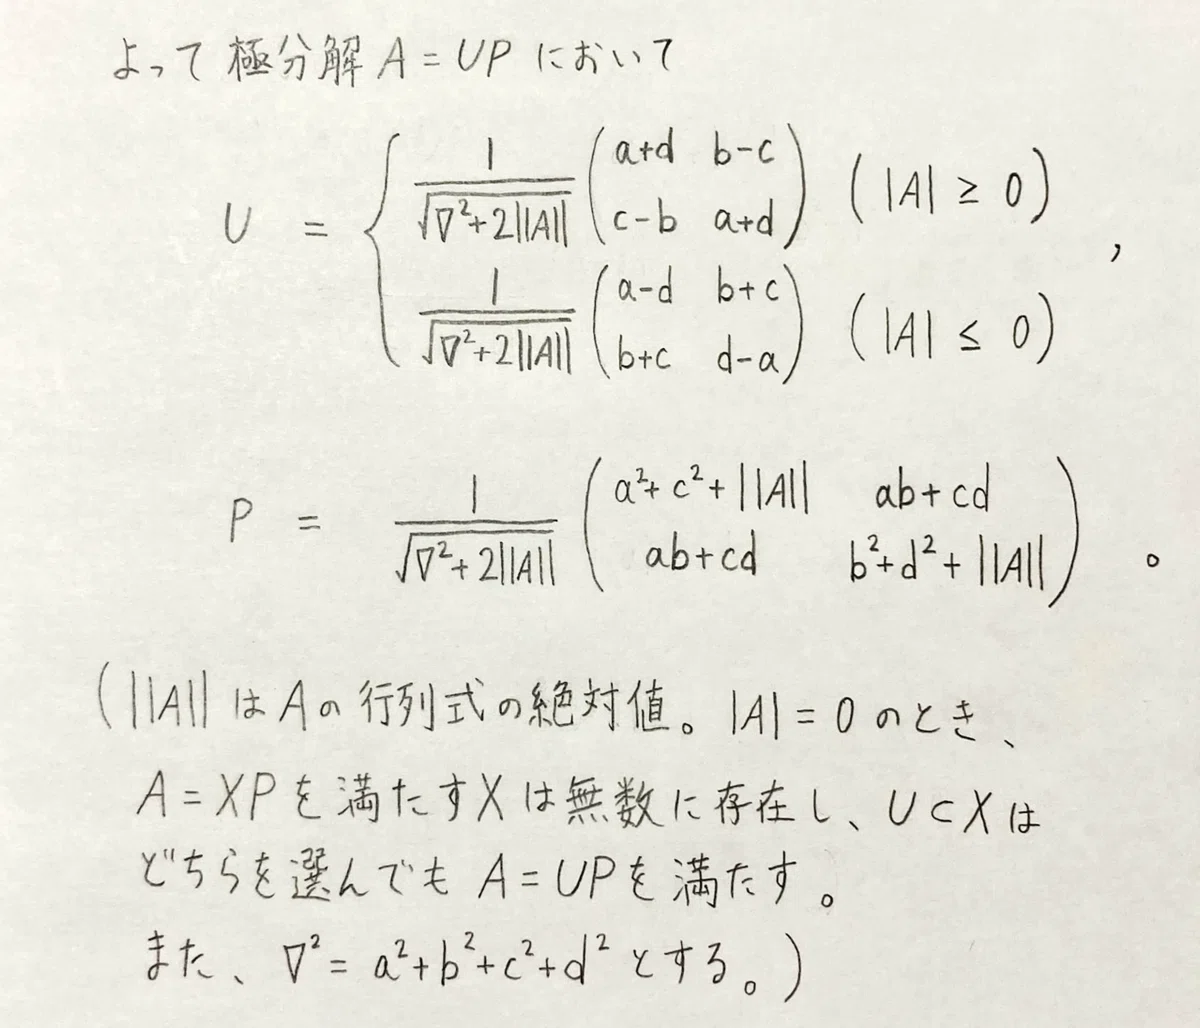 よって 極分解 A = UP において
U = { 1/√(∇²+2||A||) ( a+d b-c ; c-b a+d ) ( |A| ≥ 0 )
1/√(∇²+2||A||) ( a-d b+c ; b+c d-a ) ( |A| ≤ 0 ) ,
P = 1/√(∇²+2||A||) ( a²+c²+||A|| ab+cd ; ab+cd b²+d²+||A|| ) 。
( ||A|| は A の 行列式の絶対値。|A| = 0 のとき、
A = XP を 満たす X は 無数に存在し、U ⊂ X は
どちらを選んでも A = UP を 満たす。
また、∇² = a²+b²+c²+d² とする。)